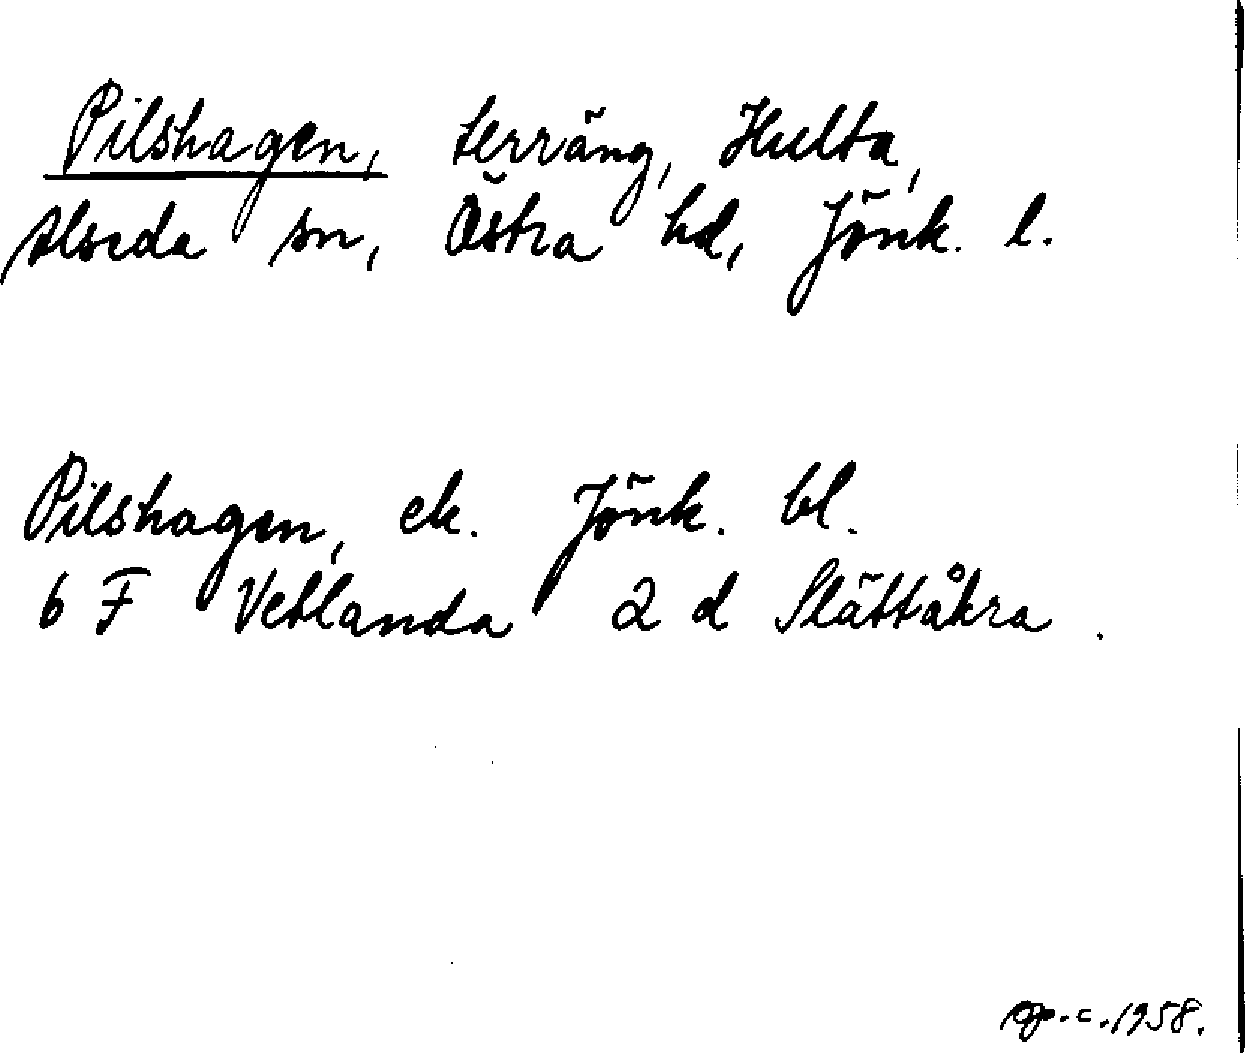 Pilshagen, terräng, Hulta,
Alseda sn, Östra hd, Jönk. l.
Pilshagen, ek. Jönk. bl.
6 F Vetlanda 2 d Slättåkra.
c. 1958.